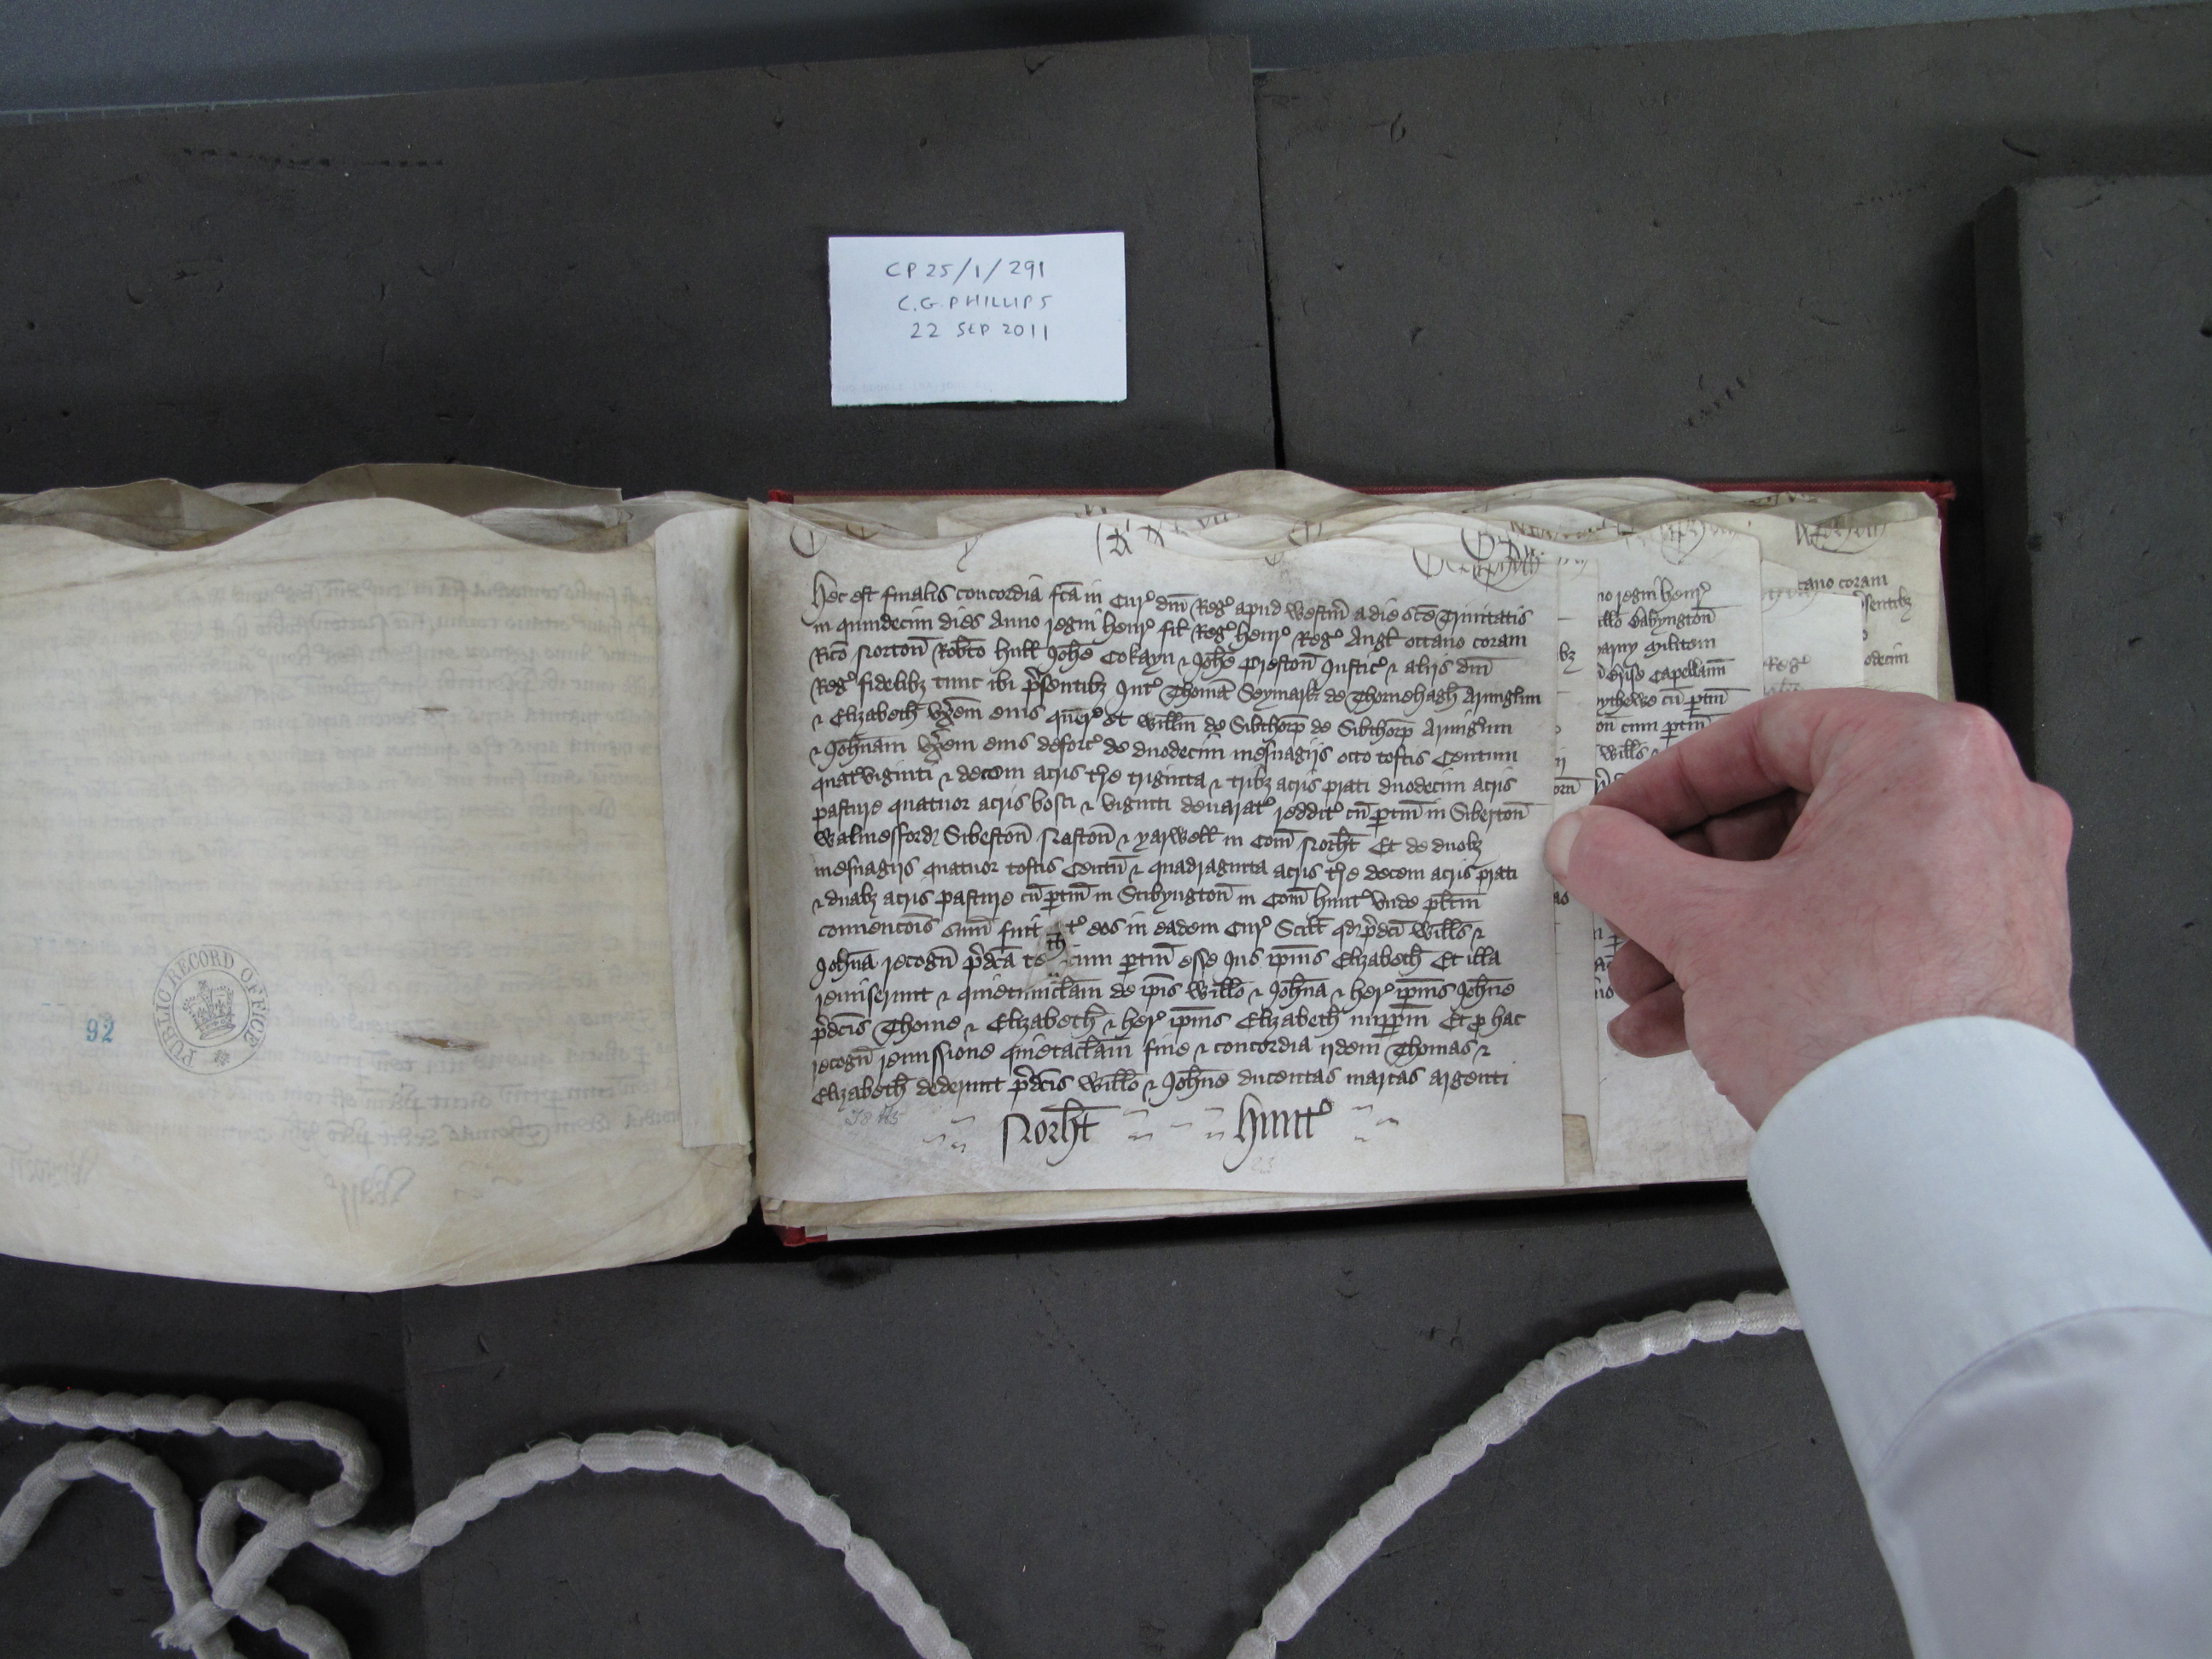 CP 25/1/291
C.G. PHILLIPS
22 SEP 2011
Hec est finalis concordia fc̄a in Cur' dn̄i Reg' apud Westm̄ a die sc̄e Trinitatis
in quindecim dies Anno regni henr' fil' Reg' henr' Reg' Angl' octavo coram
Ric̄o Norton̄ Rob̄to hull Joh̄e Cokayn & Joh̄e Preston̄ Justic' & aliis dn̄i
Reg' fidelibȝ tunc ibi p̄sentibȝ Int' Thomā Seymark de Thornehagh Armig̃um
& Elizabeth ux̄em eius quer' et Will̄m de Sibthorp̄ de Sibthorp̄ Armig̃um
& Joh̄nam ux̄em eius deforc' de duodecim mesuagiis octo toftis Centum
quat'viginti & decem acris t̄re triginta & tribȝ acris prati duodecim acris
pasture quatuor acris bosci & viginti denarat' reddit' cū p̄tin̄ in Siberton̄
Walmesford Sibeston̄ Nafton̄ & yarwell in Com̄ Norh̄t Et de duobȝ
mesuagiis quatuor toftis Centū & quadraginta acris t̄re decem acris prati
& duabȝ acris pasture cū p̄tin̄ in Stibyngton̄ in Com̄ hunt' Unde pl̄itm
convencōis sum̄ fuit t' eos in eadem Cur' Scil̄t qd p̄dc̄i Will̄s &
Joh̄na recogn̄ p̄dc̄a te cum p̄tin̄ esse Jus ip̄ius Elizabeth Et illa
remiserunt & quietumclam̄ de ip̄is Will̄o & Joh̄na & her' ip̄ius Joh̄ne
p̄dc̄is Thome & Elizabeth & her' ip̄ius Elizabeth imp̄p̄m Et p hac
recogn̄ remissione quietaclam̄ fine & concordia iidem Thomas &
Elizabeth dederunt p̄dc̄is Will̄o & Joh̄ne ducentas marcas argenti
Norh̄t hunt'
23
PUBLIC RECORD OFFICE
92
no regni henr'
illo Babyngton̄
Militem
Capellan̄m
cū p̄tin̄
cum p̄tin̄
Will̄s &
tavo coram
p̄sentibȝ
Reg'
odecim